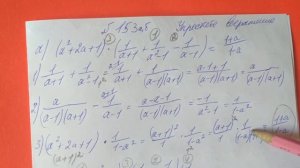 № 153аб Упростите выражение
а) (a²+2a+1)·(1/(a+1) + 1/(a²-1) - 1/(a-1)) = (1+a)/(1-a)
1) 1/(a+1) + 1/(a²-1) = 1/(a+1) + 1/((a-1)(a+1)) = (a-1+1)/((a-1)(a+1)) = a/((a-1)(a+1))
2) a/((a-1)(a+1)) - 1/(a-1) = (a-a-1)/((a-1)(a+1)) = -1/(a²-1) = 1/(1-a²)
3) (a²+2a+1)·1/(1-a²) = (a+1)²/1 · 1/(1-a²) = (a+1)²/1 · 1/((1-a)(1+a)) = (1+a)/(1-a)
(a+1)²